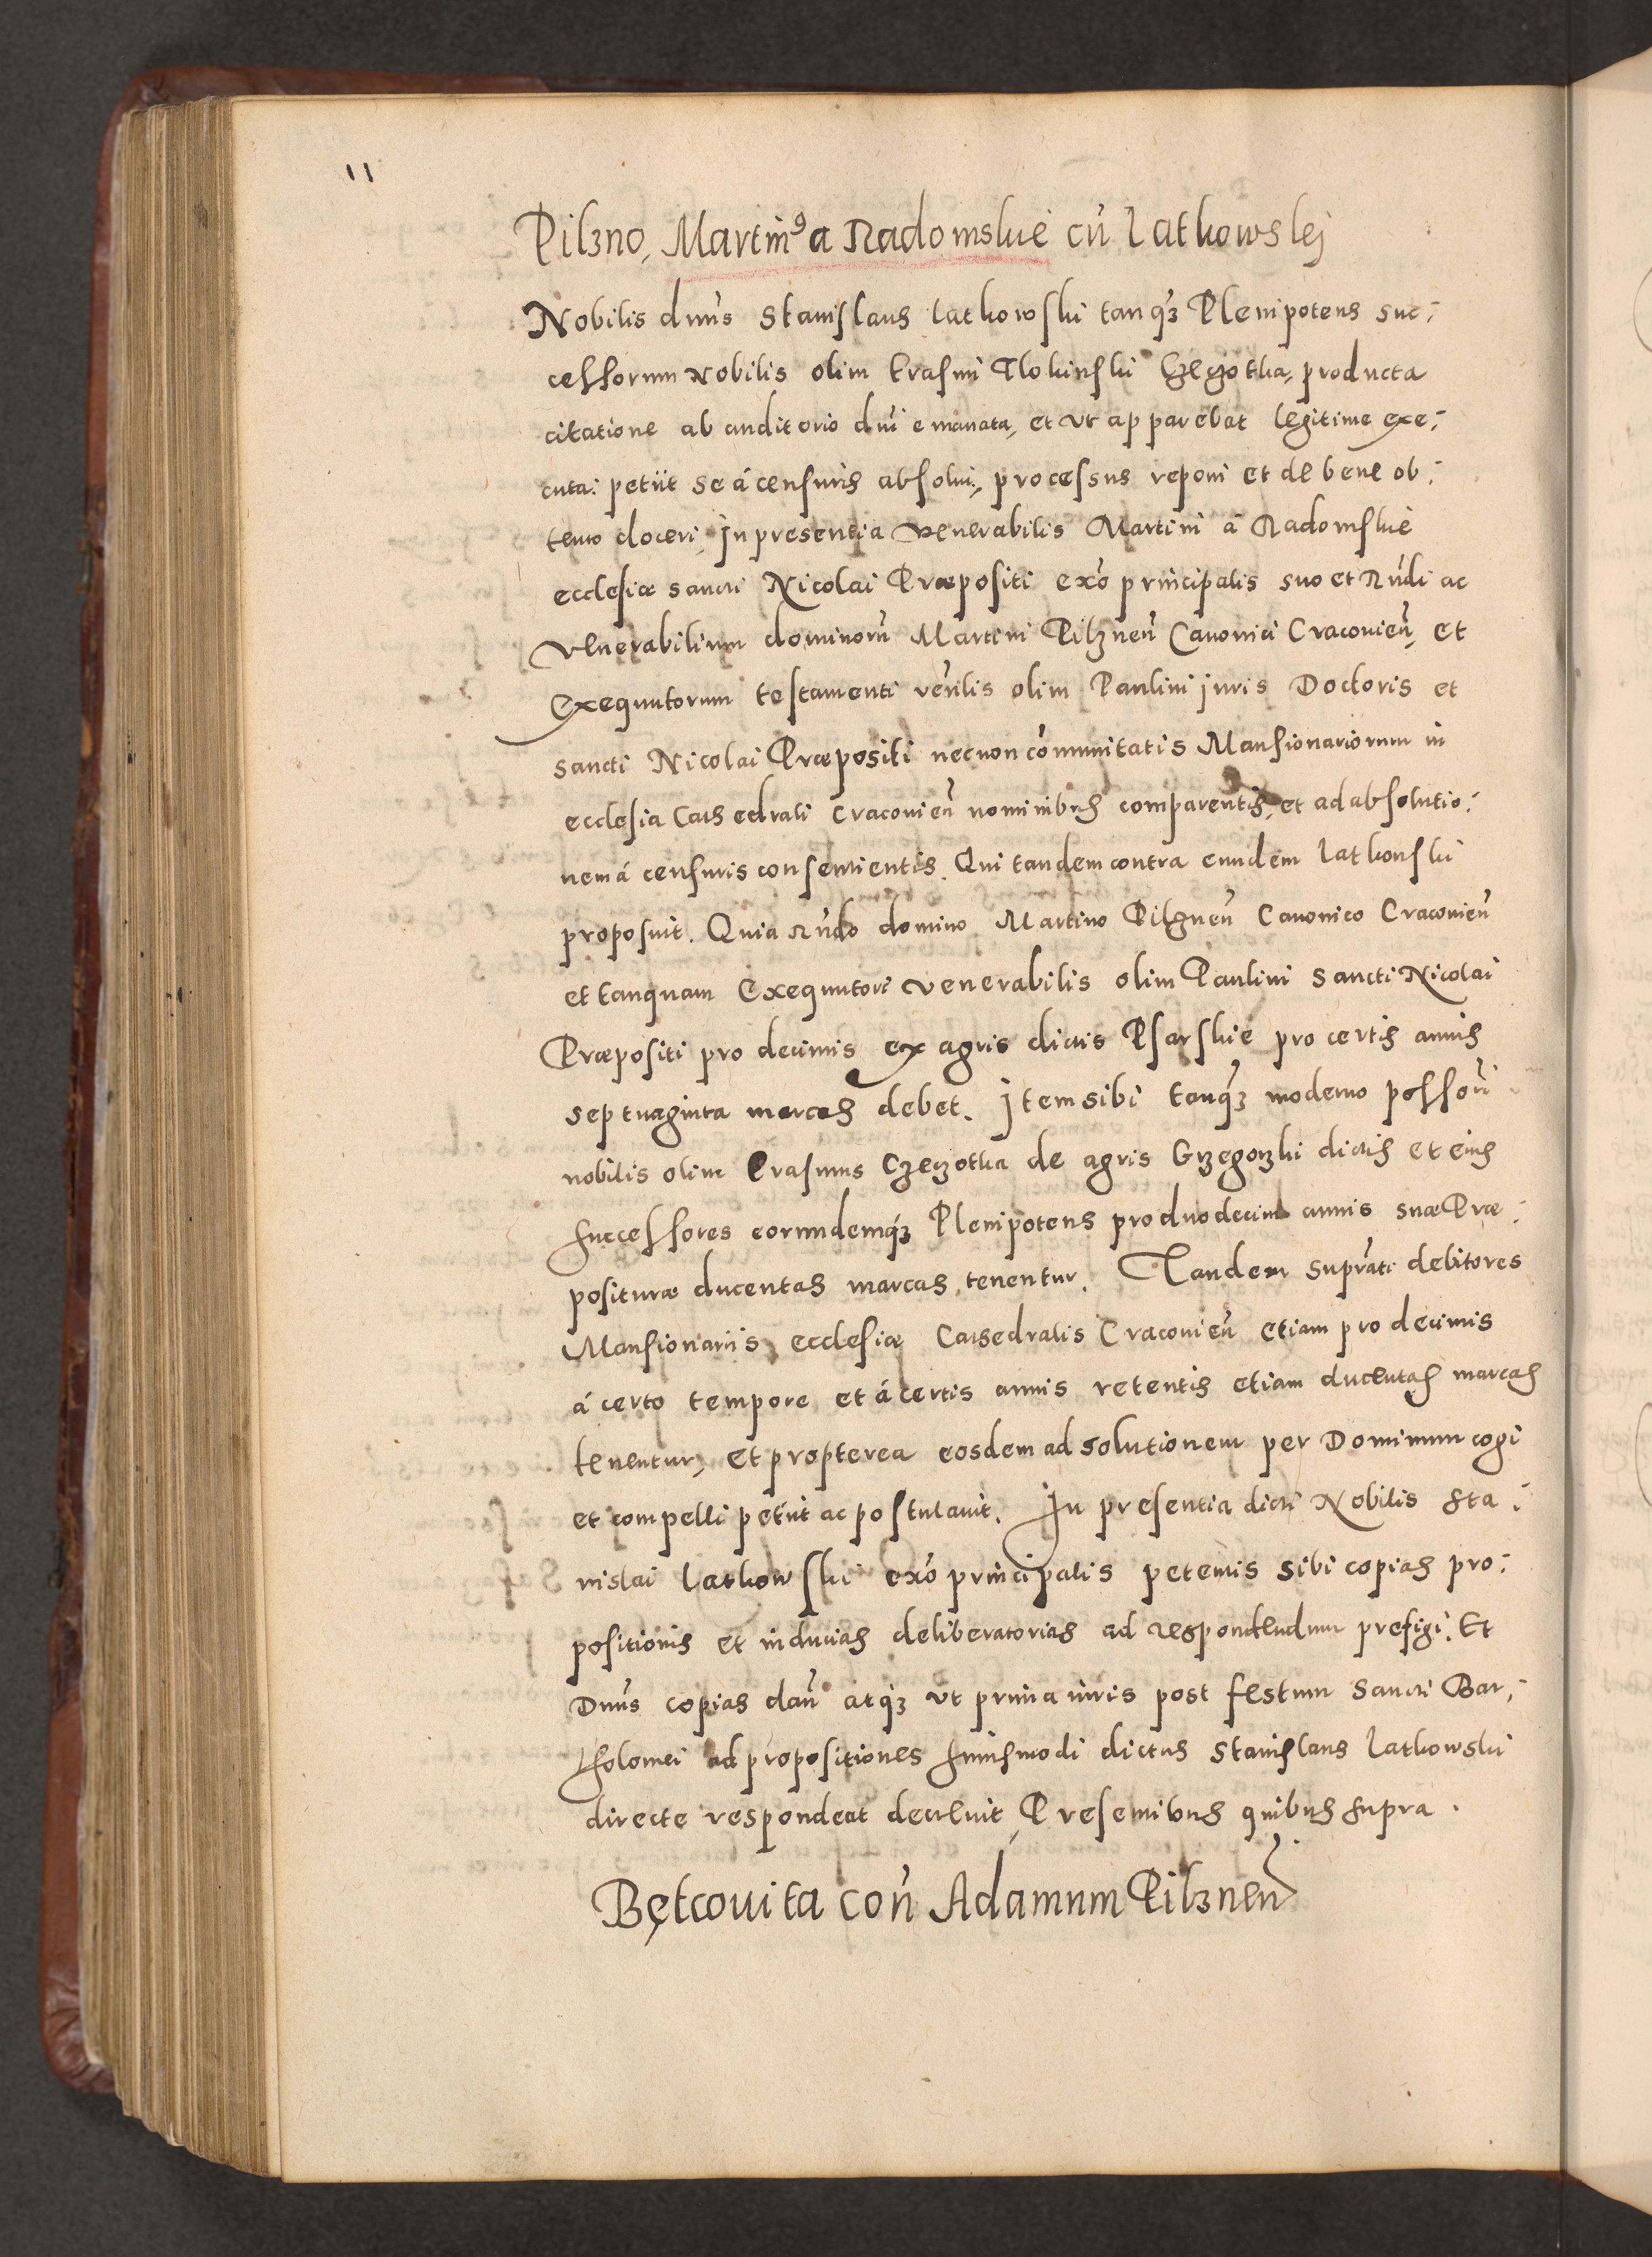 11
Pilzno, Martinꝰ a Radomskie cū Latkowslej
Nobilis dnūs Stanislaus Latkowski tanqȝ Plenipotens suc:
cessorum Nobilis olim Erasmi Tlokinski Czeczotka, producta
citatione ab auditorio dnī emanata, et ut apparebat legitime exe:
cuta: petiit se á censuris absolui, processus reponi et de bene ob:
tento doceri, In presentia Venerabilis Martini a Radomskie
ecclesiæ sancti Nicolai Præpositi exō principalis suo et Rūdi ac
Venerabilium dominorū Martini Pilzneñ Canonici Cracovieñ, et
Exequutorum testamenti vēnlis olim Paulini juris Doctoris et
sancti Nicolai Præpositi necnon cōmunitatis Mansionariorum in
ecclesia Cathedrali Cracovieñ nominibus comparentis, et ad absolutio:
nem á censuris consentientis. Qui tandem contra eundem Latkonski
proposuit. Quia Rūdo domino Martino Pilzneñ Canonico Cracovieñ
et tanquam Exequutori Venerabilis olim Paulini Sancti Nicolai
Præpositi pro decimis ex agris dictis Psarskie pro certis annis
septuaginta marcas debet. Item sibi tanqȝ moderno possōri
nobilis olim Erasmus Czeczotka de agris Grzegorzki dictis et eius
successores eorundemqȝ Plenipotens pro duodecim annis suæ Præ:
posituræ ducentas marcas tenentur. Tandem suprāti debitores
Mansionariis ecclesiæ Cathedralis Cracovieñ etiam pro decimis
á certo tempore et á certis annis retentis etiam ducentas marcas
tenentur, et propterea eosdem ad solutionem per Dominum cogi
et compelli petiit ac postulavit. In presentia dicti Nobilis Sta:
nislai Latkowski exō principalis petentis sibi copias pro:
positionis et inducias deliberatorias ad respondendum prefigi. Et
Dnūs copias dañ atqȝ ut prima iuris post festum Sancti Bar:
tholomei ad propositiones huiusmodi dictus Stanislaus Latkowski
directe respondeat decrevit, Presentibus quibus supra.
Bętcovita coñ Adamum Pilzneñ